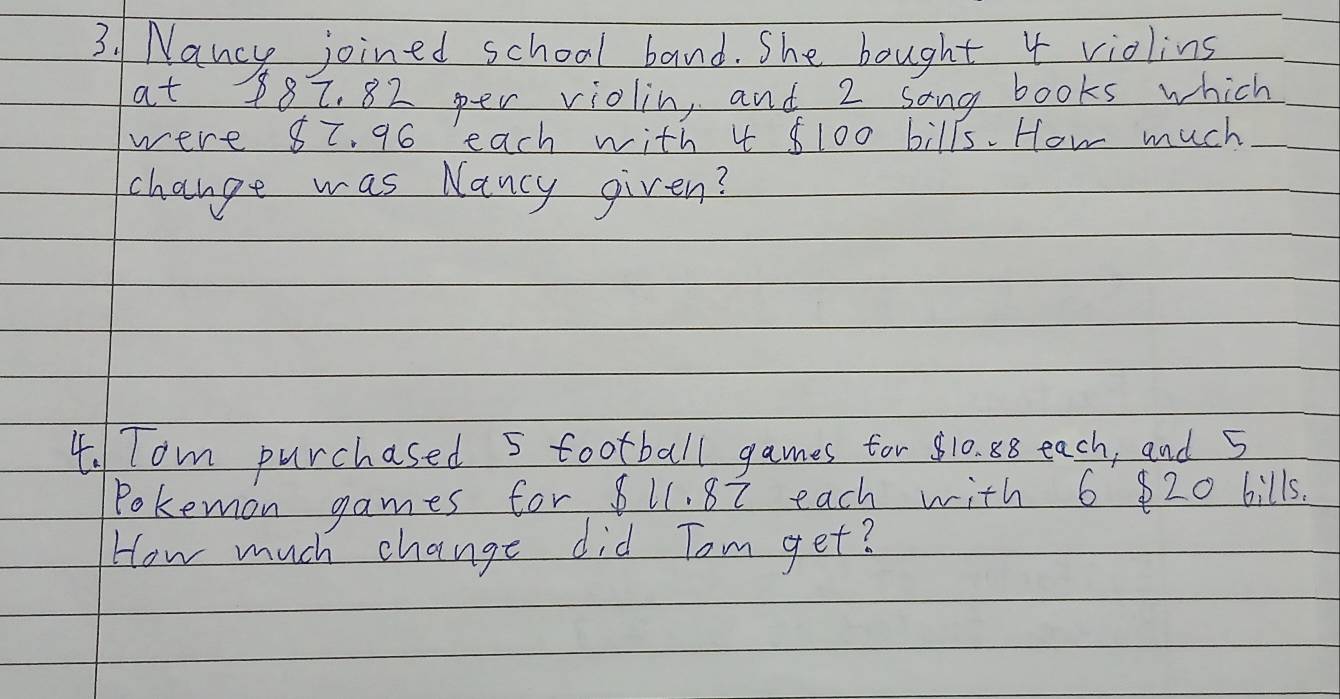 3. Nancy joined school band. She bought 4 violins
at $87.82 per violin, and 2 song books which
were $7.96 each with 4 $100 bills. How much
change was Nancy given?
4. Tom purchased 5 football games for $10.88 each, and 5
Pokemon games for $11.87 each with 6 $20 bills.
How much change did Tom get?